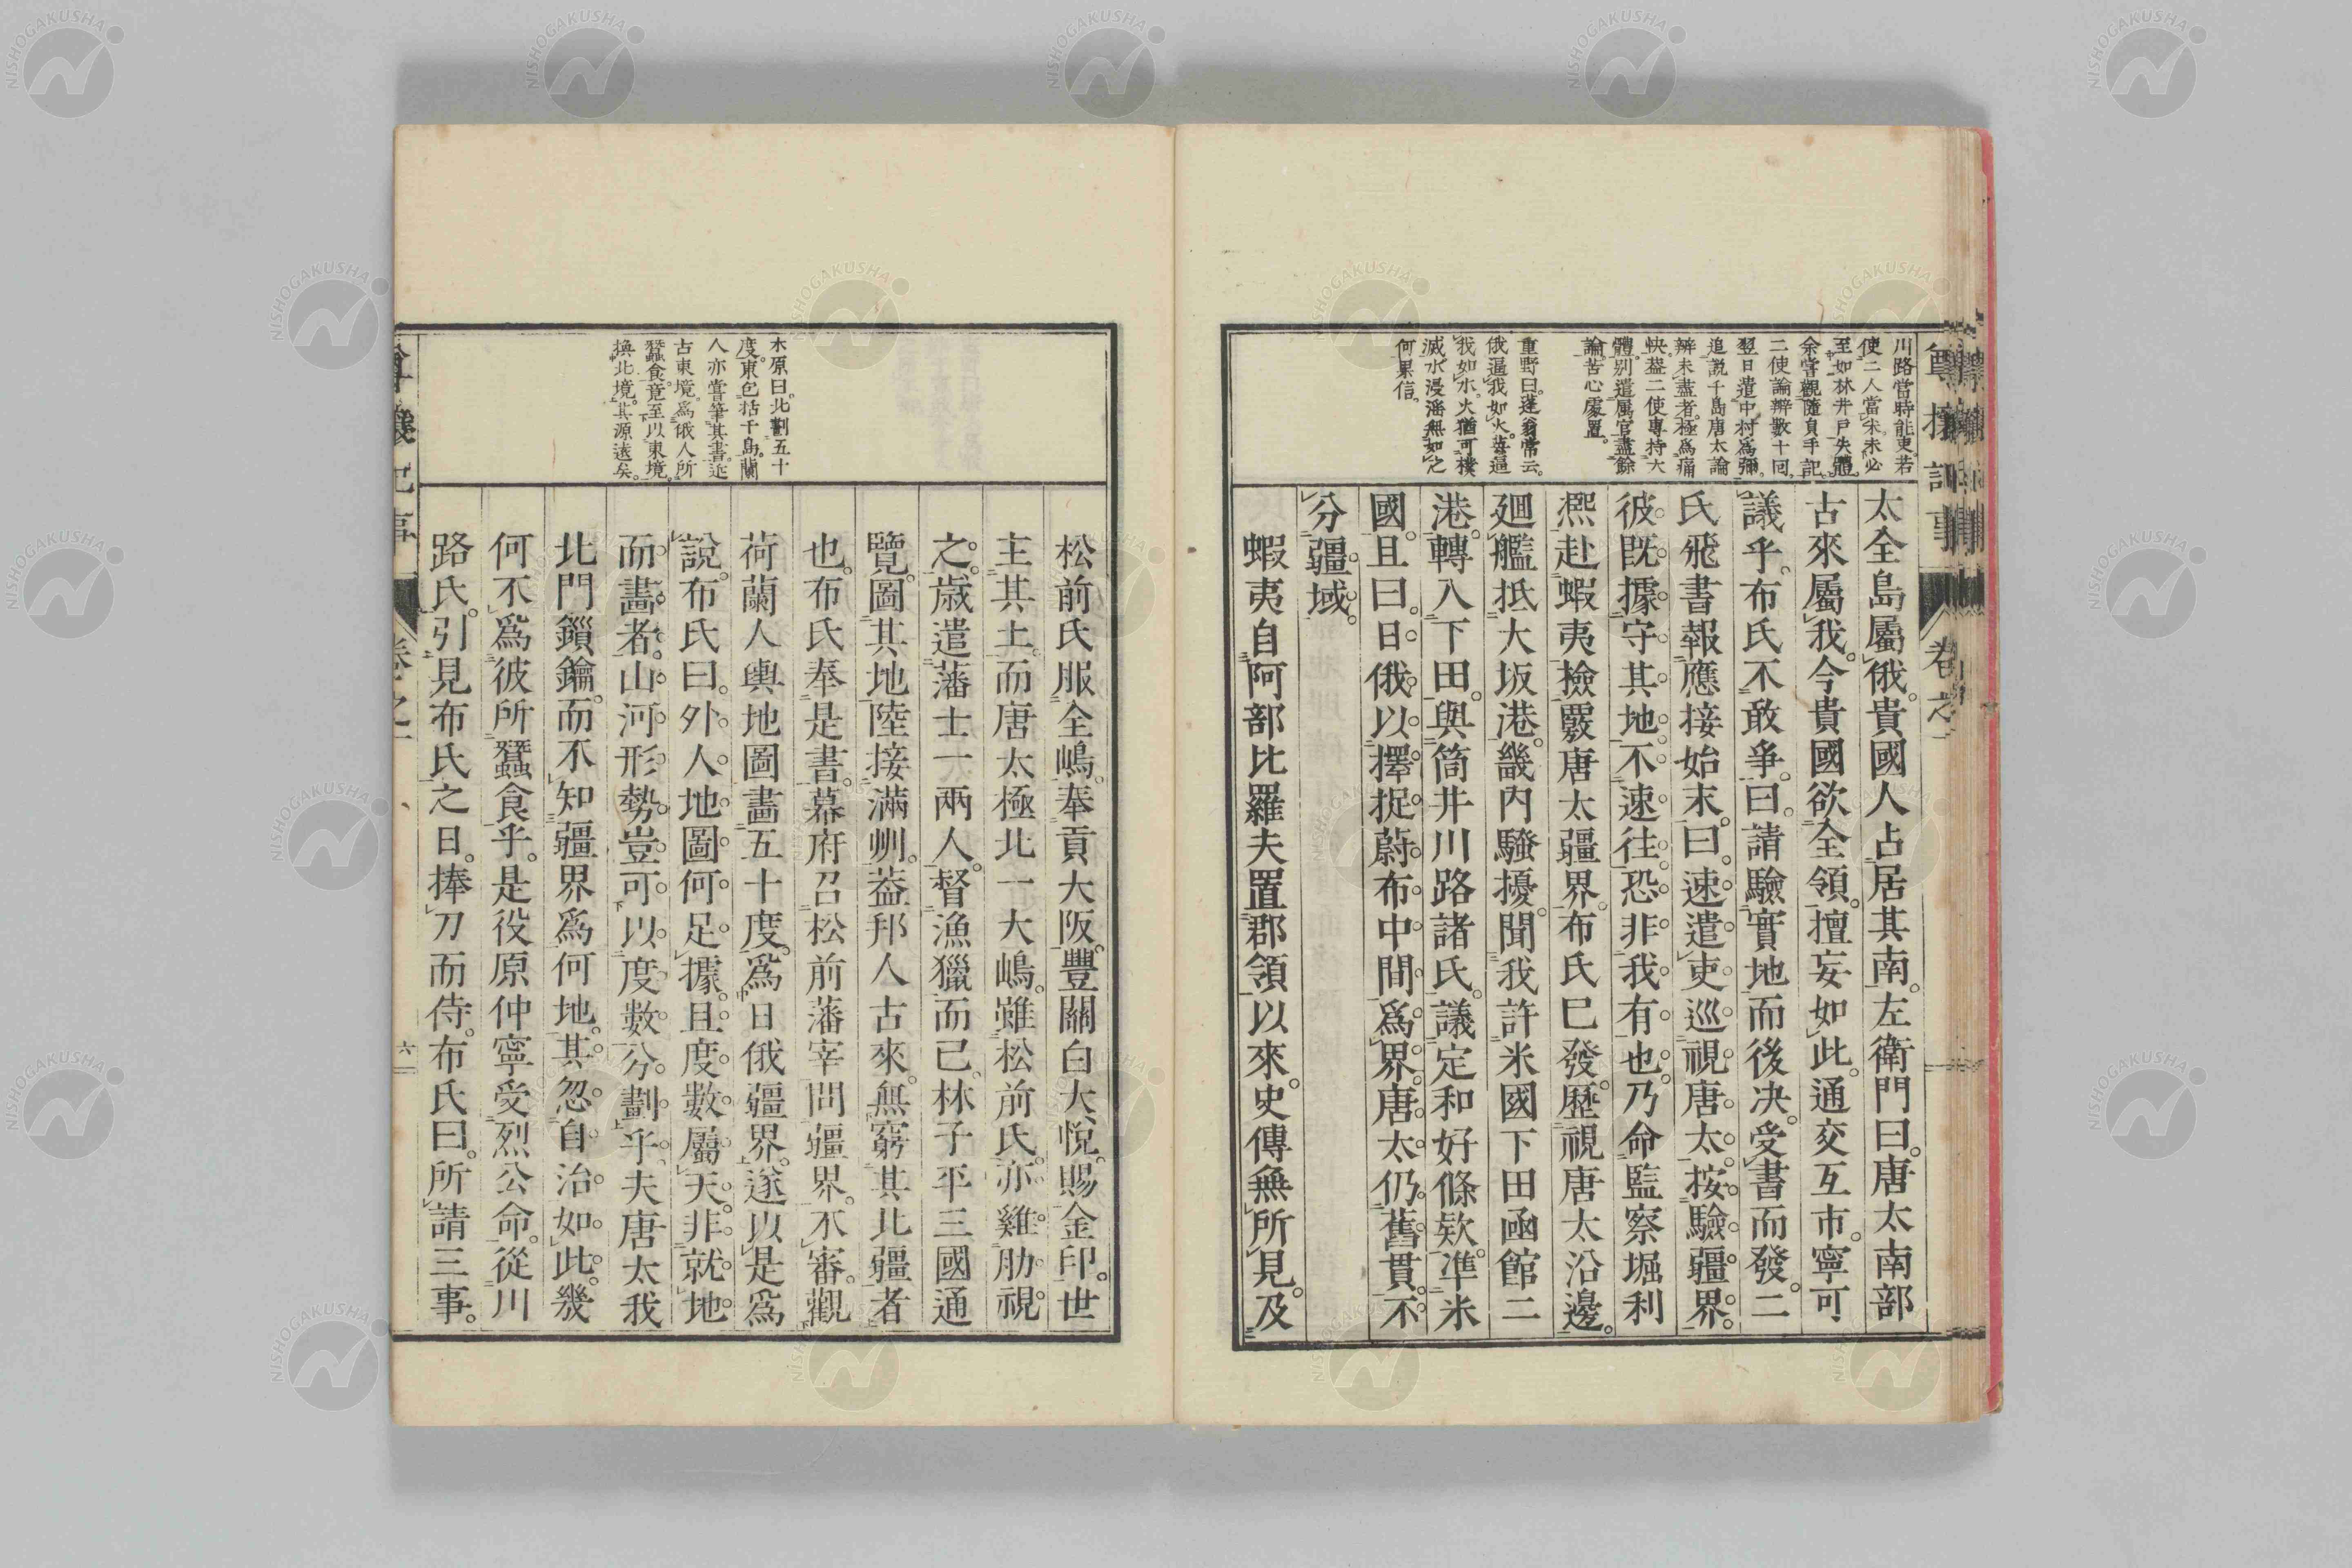 川路當時能吏若
使二人當宋末必
至如林井戸失體
余嘗觀隨員手記
二使論辯數十回
翌日遣中村爲彌
追說千島唐太論
辨未盡者極爲痛
快葢二使專持大
體別遣属官盡餘
論苦心處置
重野曰蓬翁常云
俄逼我如火英逼
我如水火猶可撲
滅水浸滔無如之
何果信
太全島屬俄。貴國人占居其南。左衛門曰。唐太南部
古來屬我。今貴國欲全領。擅妄如此。通交互市。寧可
議乎。布氏不敢爭。曰。請驗實地而後决。受書而發。二
氏飛書報應接始末。曰。速遣吏巡視唐太。按驗疆界。
彼既據守其地。不速往恐非我有也。乃命監察堀利
熙赴蝦夷撿覈唐太疆界。布氏已發。歷視唐太沿邊。
廻艦抵大坂港。畿內騷擾。聞我許米國下田凾館二
港。轉入下田。與筒井川路諸氏。議定和好條欵。準米
國。且曰。日俄以擇捉蔚布中間爲界。唐太仍舊貫。不
分疆域。
蝦夷自阿部比羅夫置郡領以來。史傳無所見。及
木原曰。北劃五十
度。東包括千島。蘭
人亦嘗筆其書。近
古東境。爲俄人所
蠶食。竟至以東境。
換北境。其源遠矣。
松前氏服全嶋。奉貢大阪。豐關白大悅。賜金印。世
主其土。而唐太極北一大嶋。雖松前氏。亦雞肋視
之。歲遣藩士一兩人。督漁獵而已。林子平三國通
覽。圖其地陸接滿洲。葢邦人古來。無窮其北疆者
也。布氏奉是書。幕府召松前藩宰問疆界。不審。觀
荷蘭人輿地圖畫五十度。爲日俄疆界。遂以是爲
說。布氏曰。外人地圖何足據。且度數屬天。非就地
而畵者。山河形勢。豈可以度數分劃乎。夫唐太我
北門鎻鑰。而不知疆界爲何地。其忽自治如此。幾
何不爲彼所蠶食乎。是役原仲寧受烈公命。從川
路氏。引見布氏之日。捧刀而侍。布氏曰。所請三事。
六